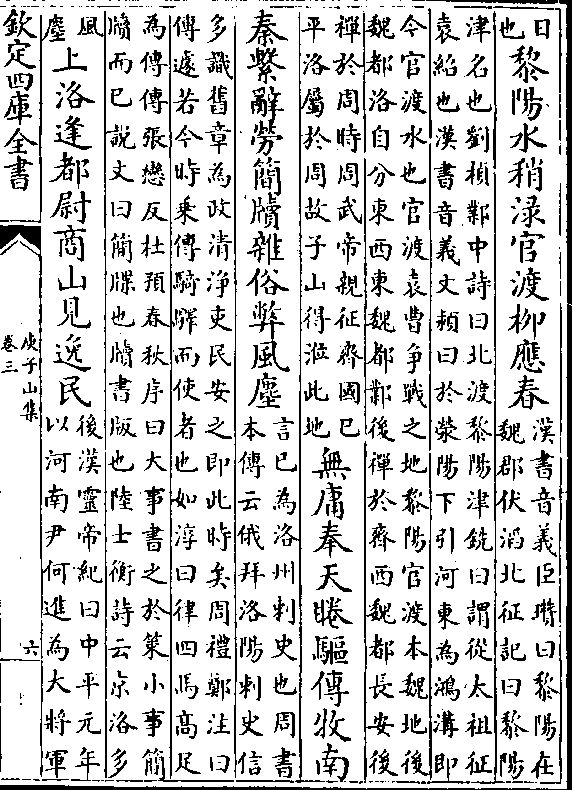 日
也
黎陽水稍渌官渡柳應春
漢書音義臣瓚曰黎陽在
魏郡伏滔北征記曰黎陽
津名也劉楨鄴中詩曰北渡黎陽津銑曰謂從太祖征
袁紹也漢書音義文穎曰於滎陽下引河東為鴻溝即
今官渡水也官渡袁曹爭戰之地黎陽官渡本魏地後
魏都洛自分東西東魏都鄴後禪於齊西魏都長安後
禪於周時周武帝親征齊國已
平洛屬於周故子山得涖此地
無庸奉天睠驅傳牧南
秦繫辭勞簡牘雜俗弊風塵
言已為洛州刺史也周書
本傳云俄拜洛陽刺史信
多識舊章為政清浄吏民安之即此時矣周禮鄭注曰
傳遽若今時乗傳騎驛而使者也如淳曰律四馬髙足
為傳傳張戀反杜預春秋序曰大事書之於策小事簡
牘而已說文曰簡牒也牘書版也陸士衡詩云京洛多
風
塵
上洛逢都尉商山見逸民
後漢靈帝紀曰中平元年
以河南尹何進為大將軍
欽定四庫全書
庾子山集
卷三
六